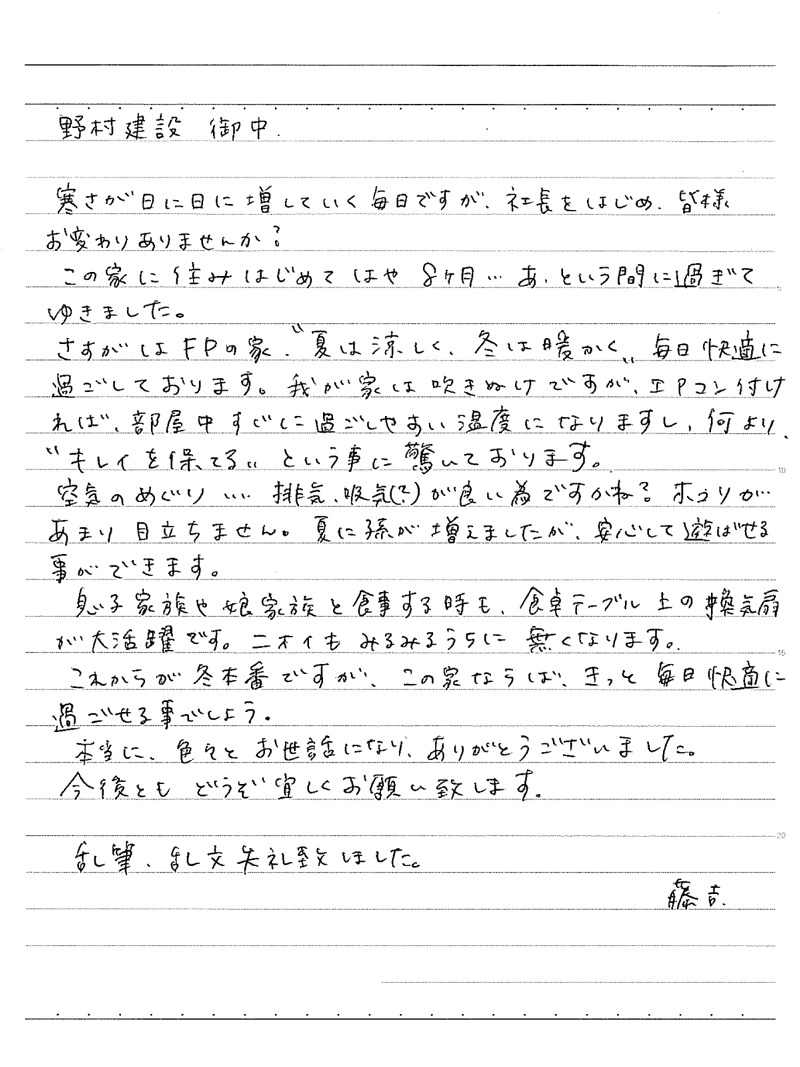 野村建設 御中.
寒さが日に日に増していく毎日ですが、社長をはじめ、皆様
お変わりありませんか?
この家に住みはじめてはや 8ヶ月… あっという間に過ぎて
ゆきました。
さすがはFPの家、〝夏は涼しく、冬は暖かく〟毎日快適に
過ごしております。我が家は吹きぬけですが、エアコン付け
れば、部屋中すぐに過ごしやすい温度になりますし、何より、
〝キレイを保てる〟という事に驚いております。
空気のめぐり…. 排気、吸気(?)が良い為ですかね? ホコリが
あまり目立ちません。夏に孫が増えましたが、安心して遊ばせる
事ができます。
息子家族や娘家族と食事する時も、食卓テーブル上の換気扇
が大活躍です。ニオイもみるみるうちに無くなります。
これからが冬本番ですが、この家ならば、きっと毎日快適に
過ごせる事でしょう。
本当に、色々とお世話になり、ありがとうございました。
今後ともどうぞ宜しくお願い致します。
乱筆、乱文失礼致しました。
藤吉.
5
10
15
20